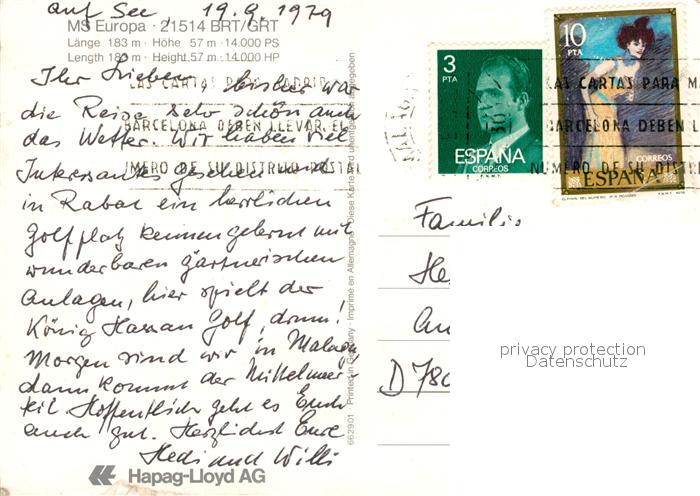 auf See 19.9.1979
MS Europa · 21514 BRT/GRT
Länge 183 m · Höhe 57 m · 14.000 PS
Length 183 m · Height 57 m · 14.000 HP
Ihr Lieben, bisher war
die Reise sehr schön auch
das Wetter. Wir haben viel
Interessantes gesehen und
in Rabat ein herrlichen
Golfplatz kennengelernt mit
wunderbaren gärtnerischen
Anlagen, hier spielt der
König Hassan Golf, drum!
Morgen sind wir in Malaga
dann kommt der Mittelmeer-
teil. Hoffentlich geht es Euch
auch gut. Herzlichst Eure
Hedi und Willi
Hapag-Lloyd AG
662901 Printed in Germany · Imprimé en Allemagne · Diese Karte wird
3
PTA
ESPAÑA
CORREOS
F.N.M.T.
10
PTA
CORREOS
ESPAÑA
LAS CARTAS PARA MADRID
BARCELONA DEBEN LLEVAR EL
NUMERO DE SU DISTRITO POSTAL
LAS CARTAS PARA M
BARCELONA DEBEN L
NUMERO DE SU DISTRI
Familie
He
An
D 780
privacy protection
Datenschutz